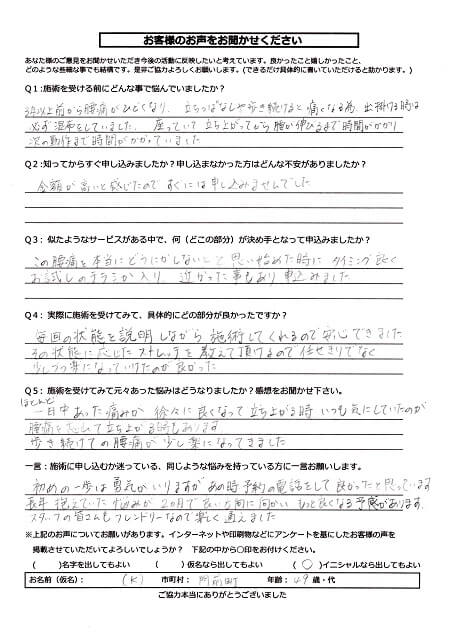 お客様のお声をお聞かせください
あなた様のご意見をお聞かせいただき今後の活動に反映したいと考えています。良かったこと嬉しかったこと、
どのような些細な事でも結構です。是非ご協力よろしくお願いします。(できるだけ具体的に書いていただけると助かります。)
Q1:施術を受ける前にどんな事で悩んでいましたか?
3年以上前から腰痛がひどくなり、立ちっぱなしや歩き続けると痛くなる為、出掛ける時は
必ず湿布をしていました。座っていて立ち上がってから腰が伸びるまで時間がかかり
次の動作まで時間がかかっていました
Q2:知ってからすぐ申し込みましたか?申し込まなかった方はどんな不安がありましたか?
金額が高いと感じたのですぐには申し込みませんでした
Q3:似たようなサービスがある中で、何(どこの部分)が決め手となって申込みましたか?
この腰痛を本当にどうにかしないとと思い始めた時にタイミング良く
お試しのチラシが入り、近かった事もあり申込みました
Q4:実際に施術を受けてみて、具体的にどの部分が良かったですか?
毎回の状態を説明しながら施術してくれるので安心できました
その状態に応じたストレッチを教えて頂けるので任せきりでなく
少しづつ楽になっていけたのが良かった
Q5:施術を受けてみて元々あった悩みはどうなりましたか?感想をお聞かせ下さい。
ほとんど
一日中あった痛みが徐々に良くなって立ち上がる時いつも気にしていたのが
腰痛を忘れて立ち上がる時もあります
歩き続けての腰痛が少し楽になってきました
一言:施術に申し込むか迷っている、同じような悩みを持っている方に一言お願いします。
初めの一歩は勇気がいりますがあの時予約の電話をして良かったと思っています
長年抱えていた悩みが2ヵ月で良い方向に向かいもっと良くなる予感があります。
スタッフの皆さんもフレンドリーなので楽しく通えました
※上記のお声についてお願いがあります。インターネットや印刷物などにアンケートを基にしたお客様の声を
掲載させていただいてよろしいでしょうか? 下記の中から〇印をお付けください。
( )名字を出してもよい ( )仮名なら出してもよい (〇)イニシャルなら出してもよい
お名前(仮名): (K) 市町村: 阿南町 年齢:49歳・代
ご協力本当にありがとうございました